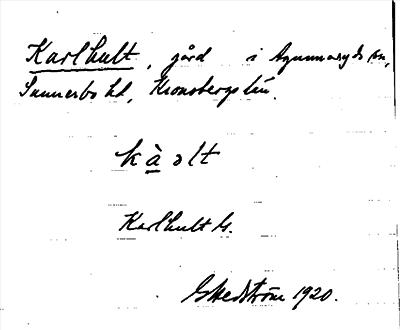 Karlhult, gård i Agunnaryds sn,
Sunnerbo hd, Kronobergs län.
kàolt
Karlhult G.
Skedström 1920.